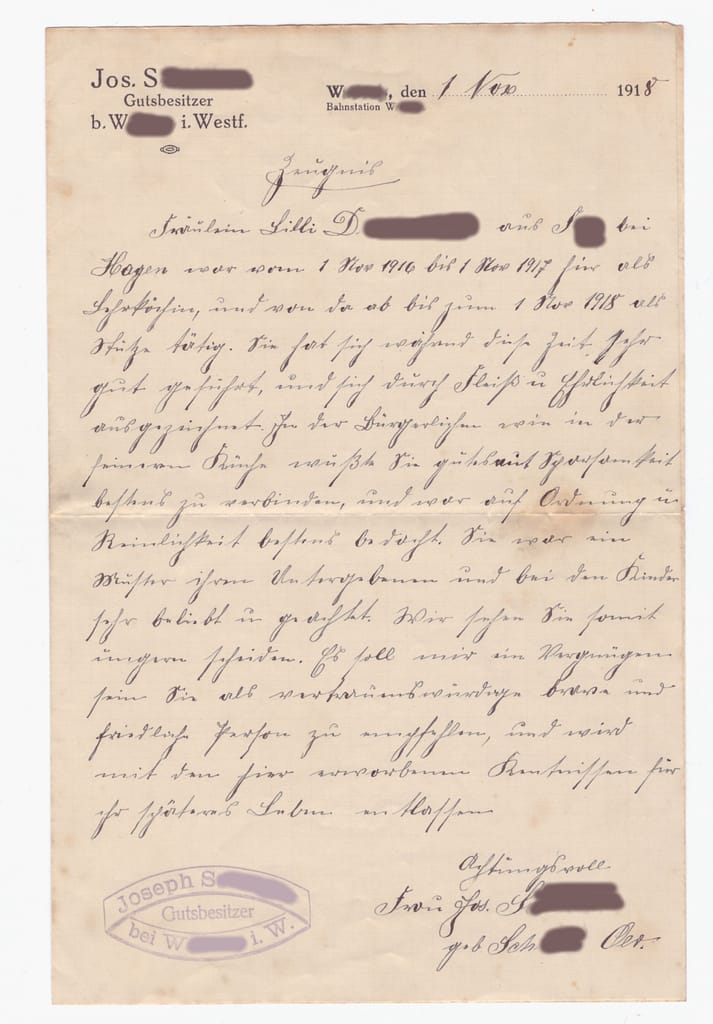 Jos. S
Gutsbesitzer
b. W i. Westf.
W , den 1 Nov 1918
Bahnstation W
Zeugnis
Fräulein Lilli D. aus bei
Hagen war vom 1 Nov 1916 bis 1 Nov 1917 hier als
Lehrköchin, und von da ab bis zum 1 Nov 1918 als
Stütze tätig. Sie hat sich während diese Zeit sehr
gut geführt, und sich durch Fleiß u Ehrlichkeit
ausgezeichnet. In der Bürgerlichen wie in der
feinern Küche wußte Sie gutes mit Sparsamkeit
bestens zu verbinden, und war auf Ordnung u
Reinlichkeit bestens bedacht. Sie war ein
Muster ihren Untergebenen und bei den Kinder
sehr beliebt u geachtet. Wir sehen Sie somit
ungern scheiden. Es soll mir ein Vergnügen
sein Sie als vertrauenswürdige brave und
friedliche Person zu empfehlen, und wird
mit den hier erworbenen Kentnissen für
ihr späteres Leben entlassen
Achtungsvoll
Frau Jos. S
geb Sch
Joseph S
Gutsbesitzer
bei W i. W.